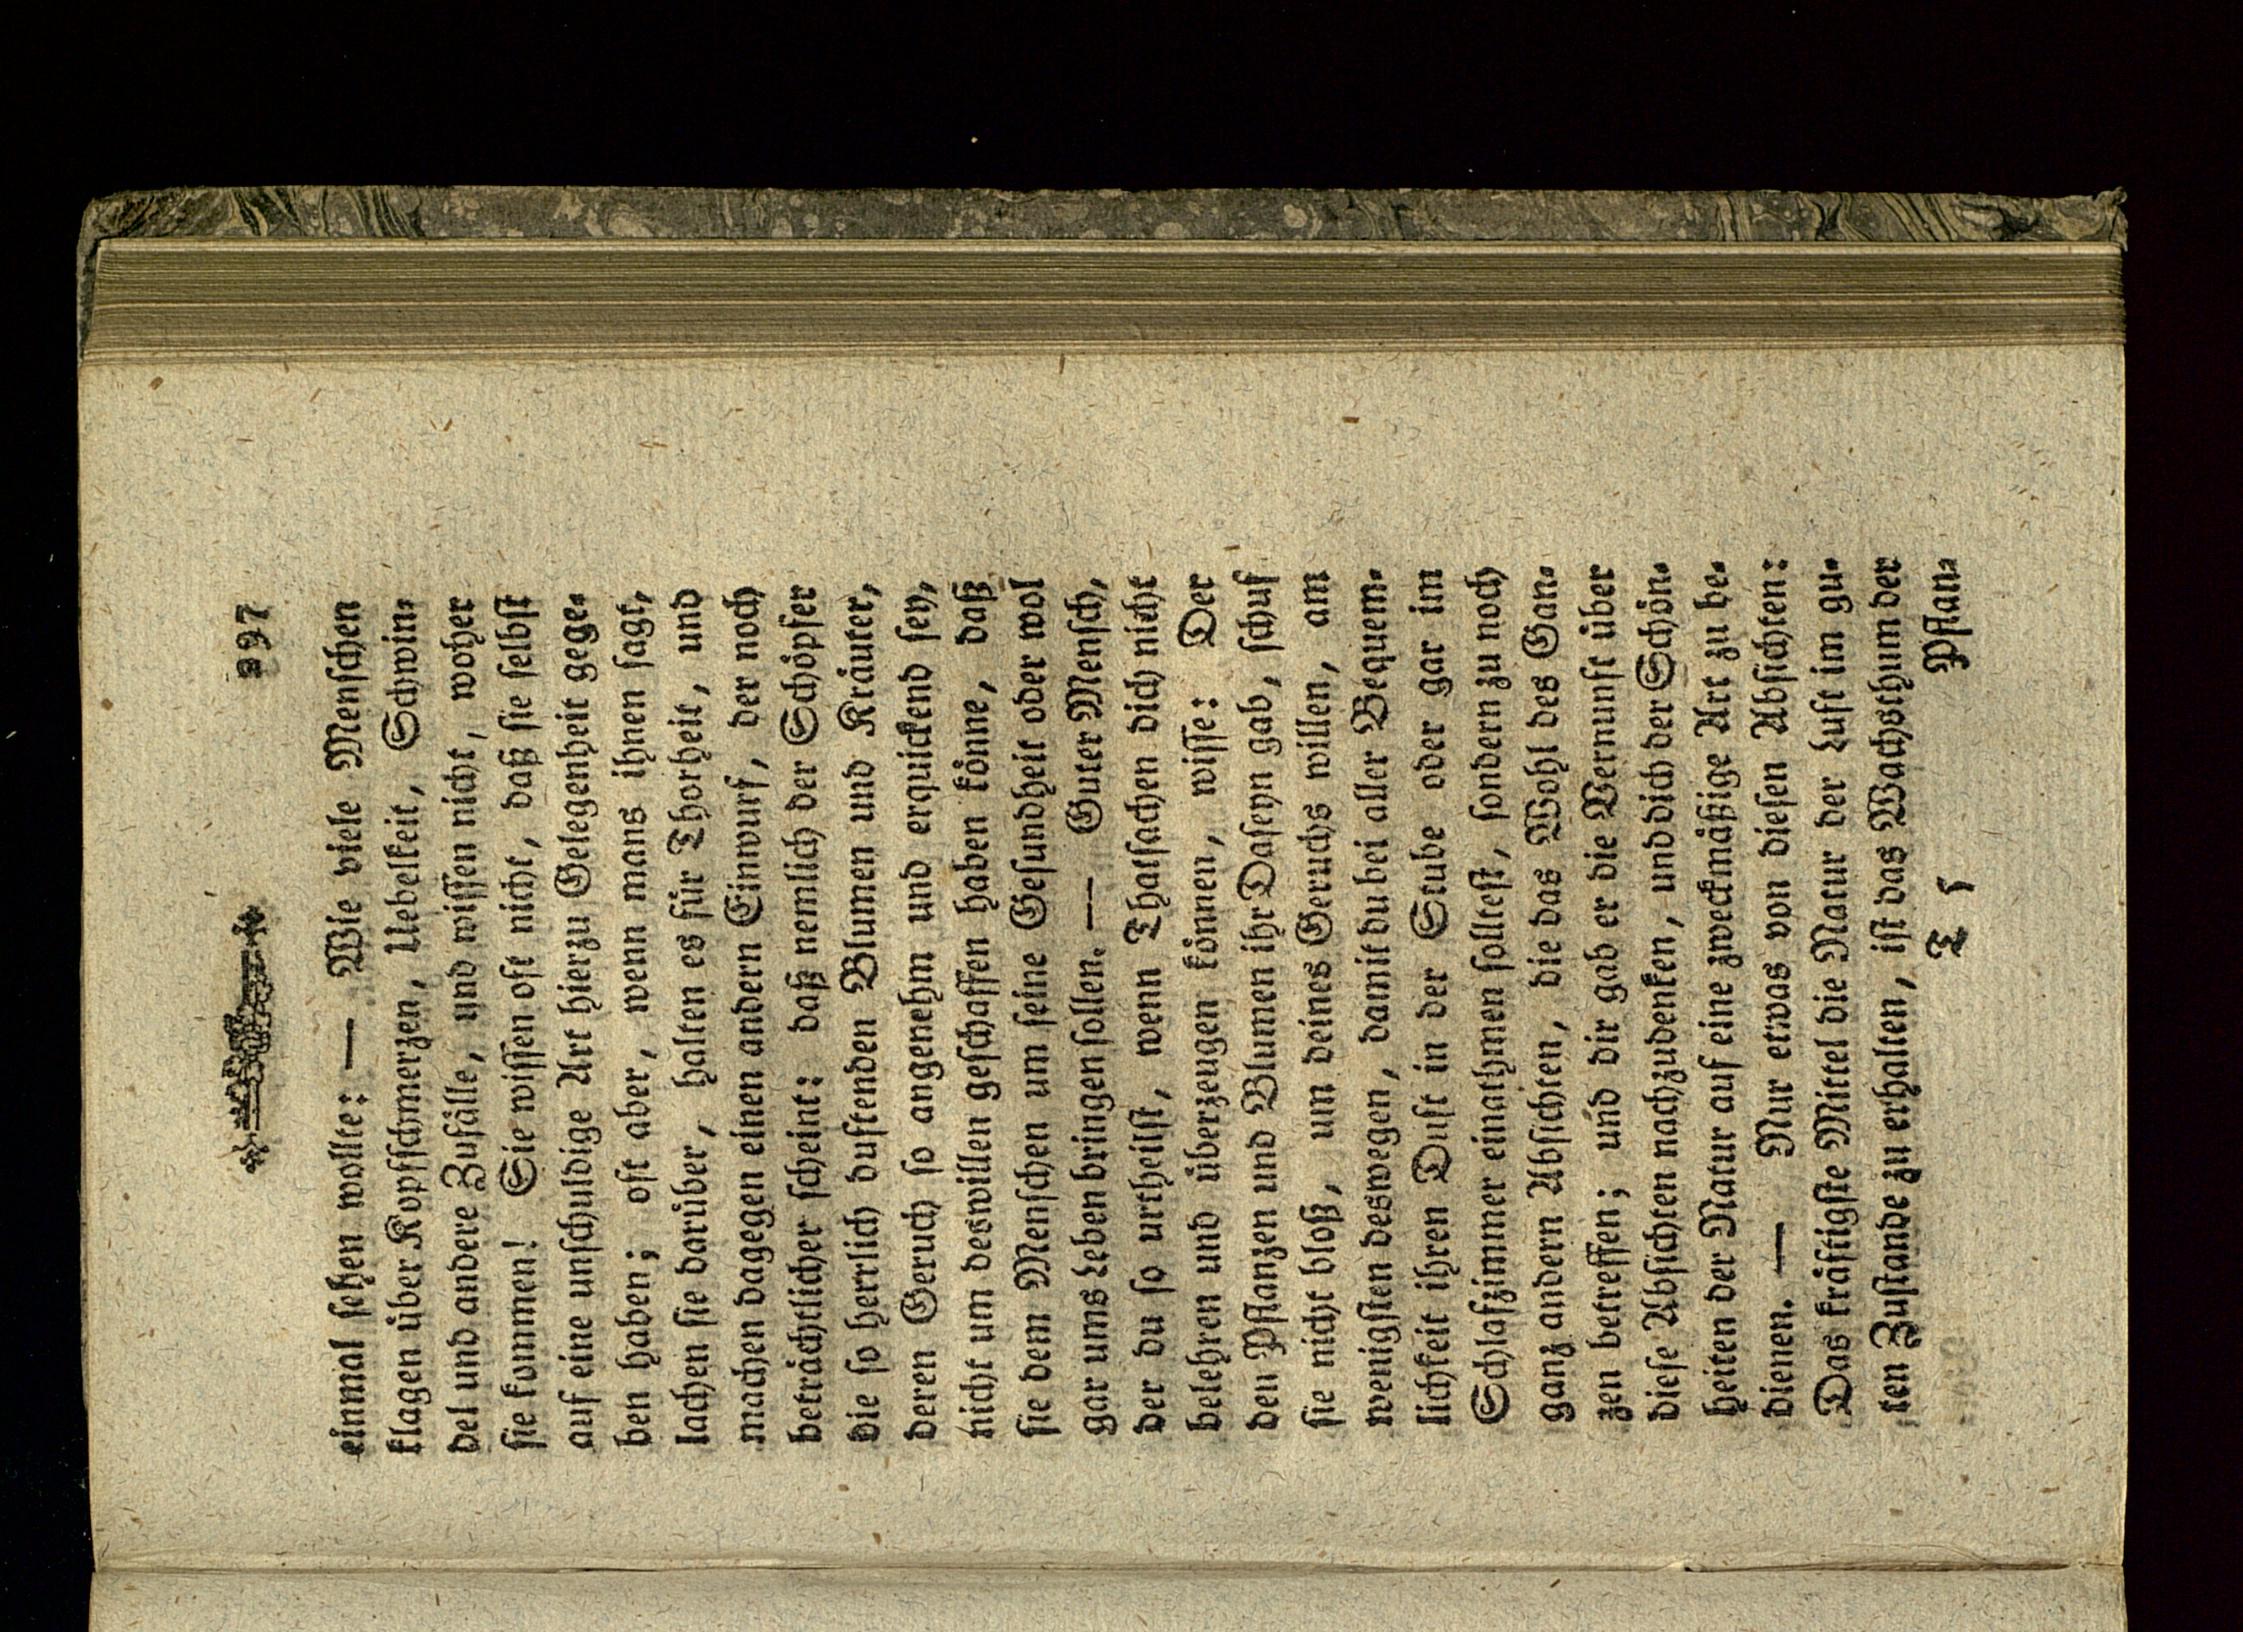 297
einmal sehen wollte: — Wie viele Menschen
klagen über Kopfschmerzen, Uebelkeit, Schwin-
del und andere Zufälle, und wissen nicht, woher
sie kommen! Sie wissen oft nicht, daß sie selbst
auf eine unschuldige Art hierzu Gelegenheit gege-
ben haben; oft aber, wenn mans ihnen sagt,
lachen sie darüber, halten es für Thorheit, und
machen dagegen einen andern Einwurf, der noch
beträchtlicher scheint: daß nemlich der Schöpfer
die so herrlich duftenden Blumen und Kräuter,
deren Geruch so angenehm und erquickend sey,
nicht um deswillen geschaffen haben könne, daß
sie dem Menschen um seine Gesundheit oder wol
gar ums Leben bringen sollen. — Guter Mensch,
der du so urtheilst, wenn Thatsachen dich nicht
belehren und überzeugen können, wisse: Der
den Pflanzen und Blumen ihr Daseyn gab, schuf
sie nicht bloß, um deines Geruchs willen, am
wenigsten deswegen, damit du bei aller Bequem-
lichkeit ihren Duft in der Stube oder gar im
Schlafzimmer einathmen solltest, sondern zu noch
ganz andern Absichten, die das Wohl des Gan-
zen betreffen; und dir gab er die Vernunft über
diese Absichten nachzudenken, und dich der Schön-
heiten der Natur auf eine zweckmäßige Art zu be-
dienen. — Nur etwas von diesen Absichten:
Das kräftigste Mittel die Natur der Luft im gu-
ten Zustande zu erhalten, ist das Wachsthum der
T 5 Pflan-